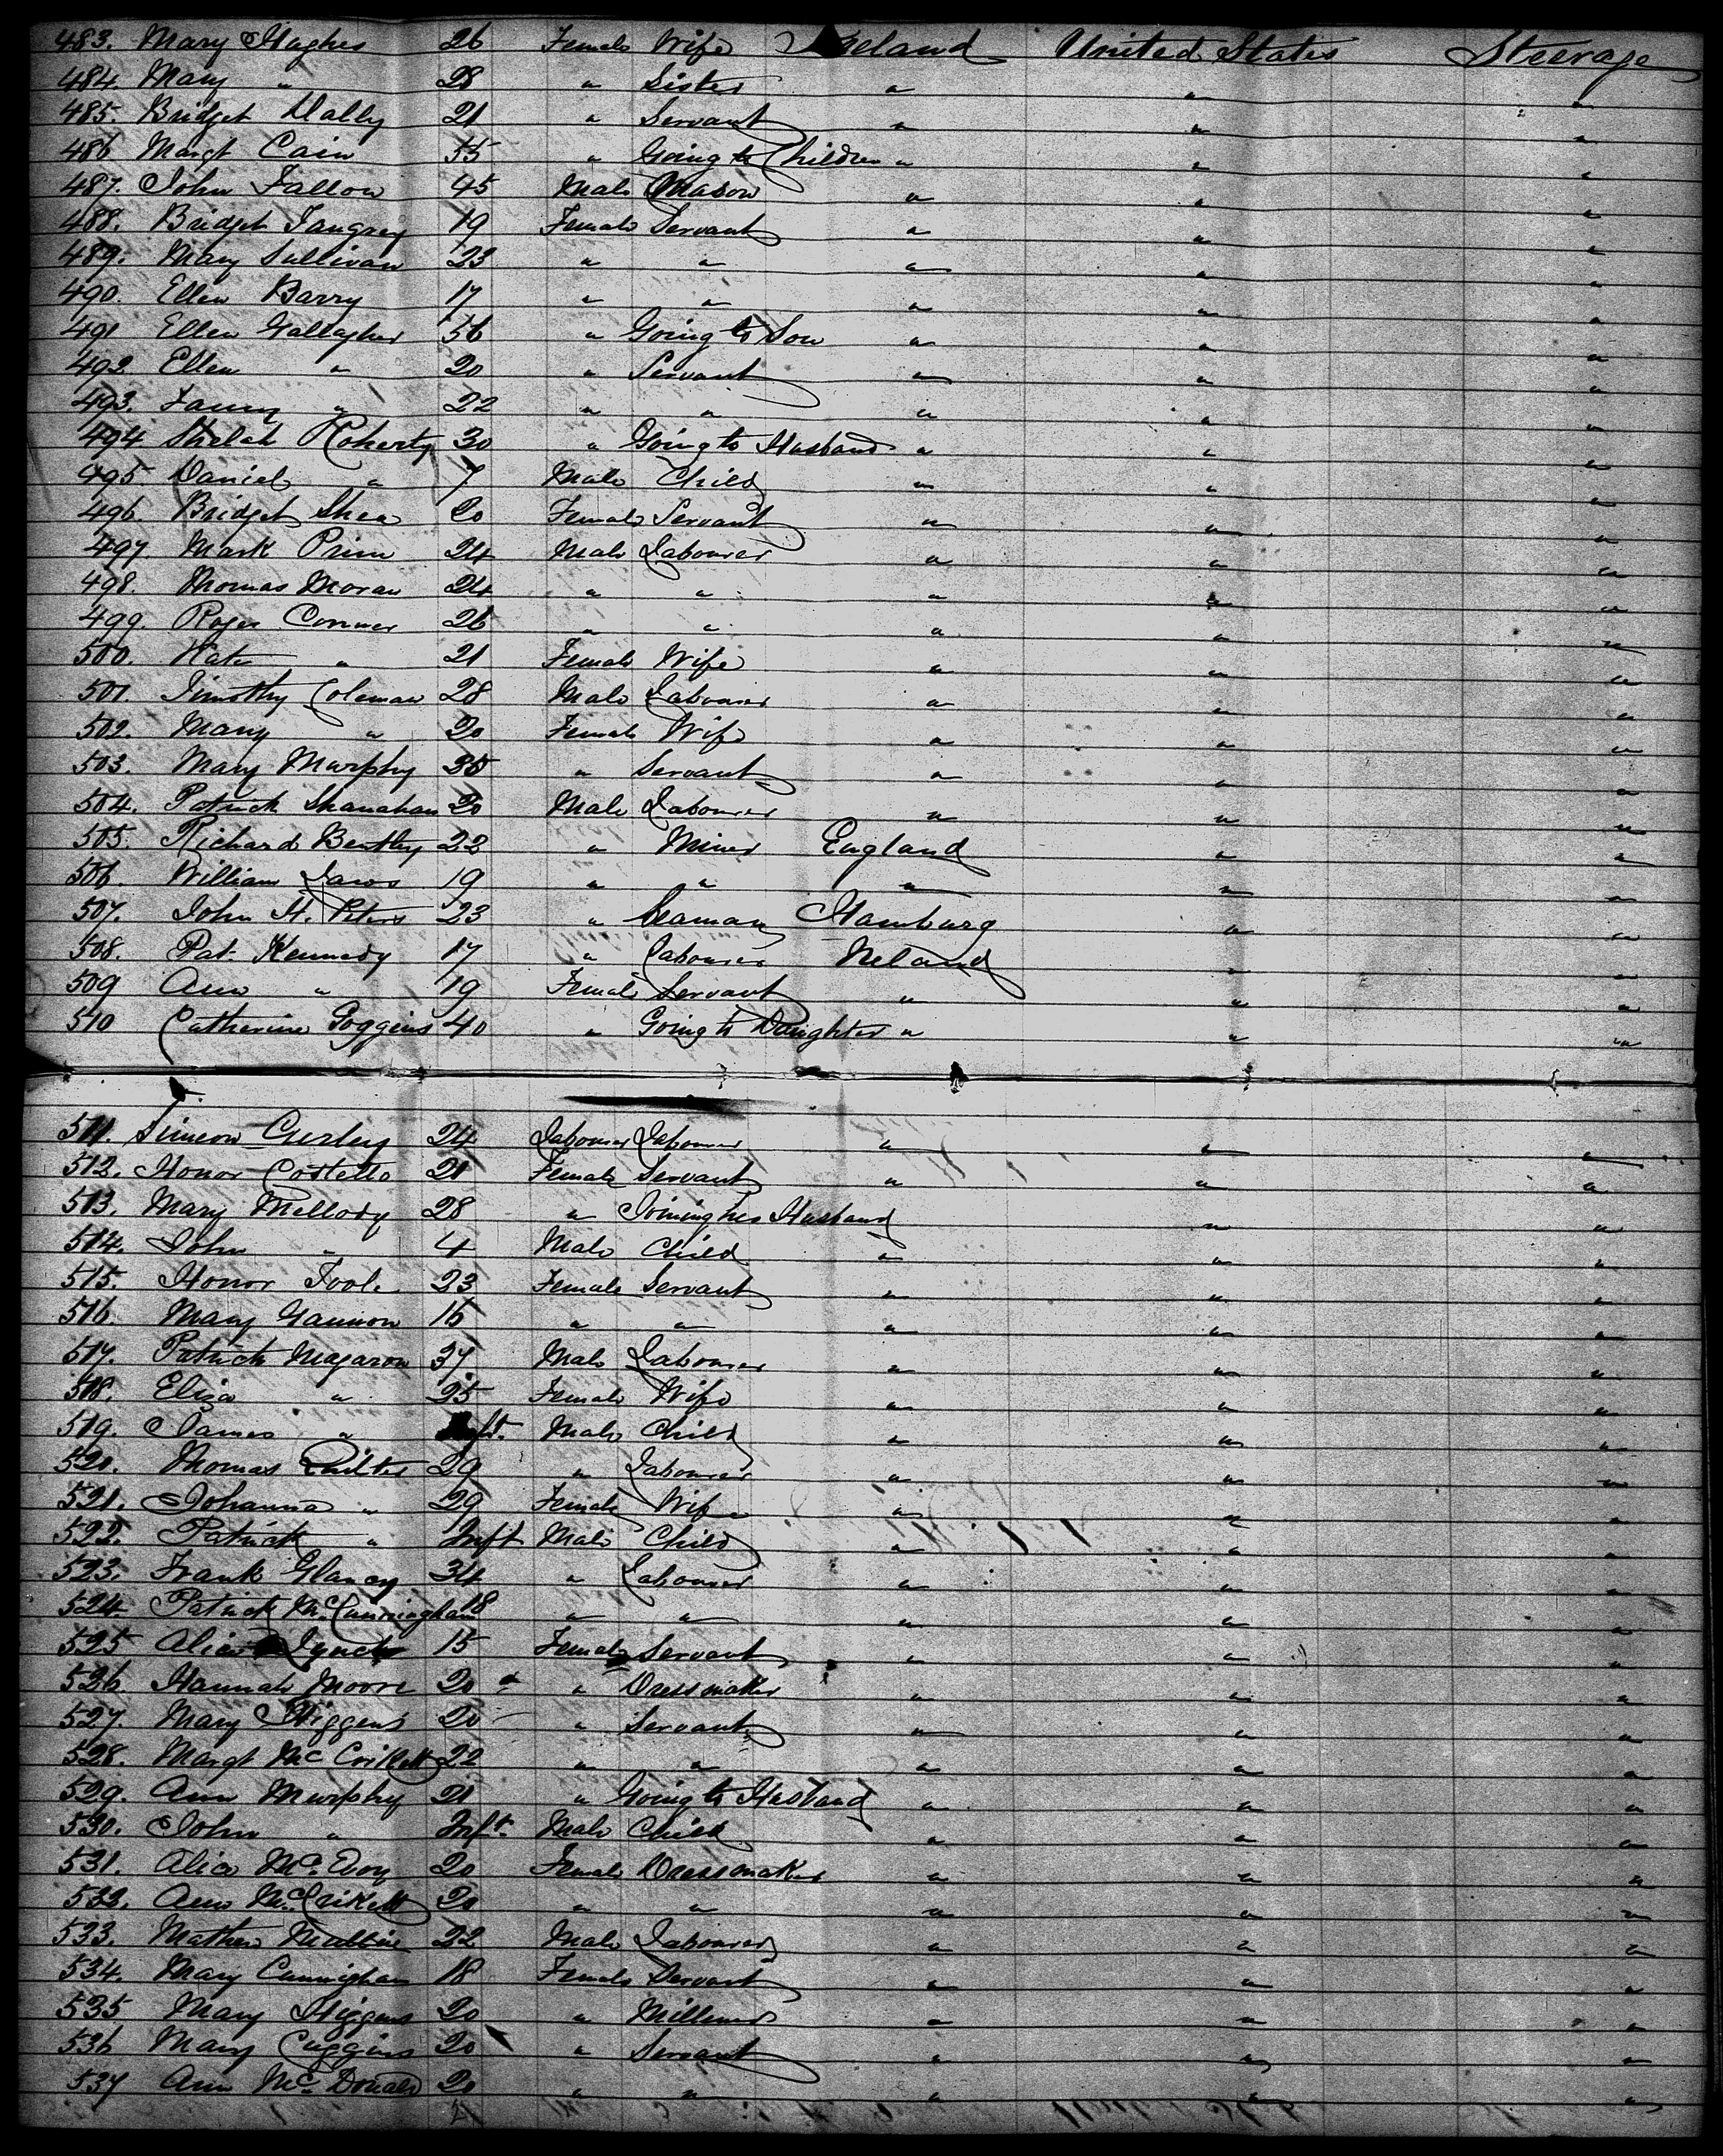 483. Mary Hughes 26 Female Wife Ireland United States Steerage
484. Mary " 28 " Sister " " "
485. Bridget Dally 21 " Servant " " "
486 Margt Cain 55 " Going to Children " " "
487. John Fallon 45 Male Mason " " "
488. Bridget 19 Female Servant " " "
489. Mary Sullivan 23 " " " " "
490. Ellen Barry 17 " " " " "
491 Ellen Gallagher 56 " Going to Son " " "
492 Ellen " 20 " Servant " " "
493. Fanny " 22 " " " " "
494 30 " Going to Husband " " "
495. Daniel " 7 Male Child " " "
496. Bridget Shea 20 Female Servant " " "
497. Mark Prim 24 Male Labourer " " "
498. Thomas Moran 24 " " " " "
499. Roger Connor 26 " " " " "
500. Kate " 21 Female Wife " " "
501. Timothy Coleman 28 Male Labourer " " "
502. Mary " 20 Female Wife " " "
503. Mary Murphy 35 " Servant " " "
504. Patrick Shanahan 20 Male Labourer " " "
505. Richard Bentley 22 " Miner England " "
506. William Laws 19 " " " " "
507. John H. Peters 23 " Seaman Hamburg " "
508. Pat. Kennedy 17 " Labourer Ireland " "
509 Ann " 19 Female Servant " " "
510 Catherine Goggins 40 " Going to Daughter " " "
511. Simeon 24 Labourer Labourer " " "
512. Honor Costello 21 Female Servant " " "
513. Mary Mellody 28 " Joining her Husband " "
514. John " 4 Male Child " " "
515. Honor Toole 23 Female Servant " " "
516. Mary Gannon 16 " " " " "
517. Patrick Magaron 37 Male Labourer " " "
518. Eliza " 25 Female Wife " " "
519. James " Inft. Male Child " " "
520. Thomas Quilter 29 " Labourer " " "
521. Johanna " 29 Female Wife " " "
522. Patrick " Inft Male Child " " "
523. Frank Glancy 34 " Labourer " " "
524 Patrick McCunningham 18 " " " " "
525 Alice Lynch 15 Female Servant " " "
526. Hannah Moore 20 " Dressmaker " " "
527. Mary Higgens 20 " Servant " " "
528. Margt McCrikett 22 " " " " "
529. Ann Murphy 21 " Going to Husband " " "
530. John " Inft. Male Child " " "
531. Alice McEvoy 20 Female Dressmaker " " "
532. Ann McCrikett 20 " " " " "
533. Mathew 22 Male Labourer " " "
534. Mary Cunnigham 18 Female Servant " " "
535 Mary Higgens 20 " Milliner " " "
536 Mary Cuggins 20 " Servant " " "
537 Ann McDonald 20 " " " " "